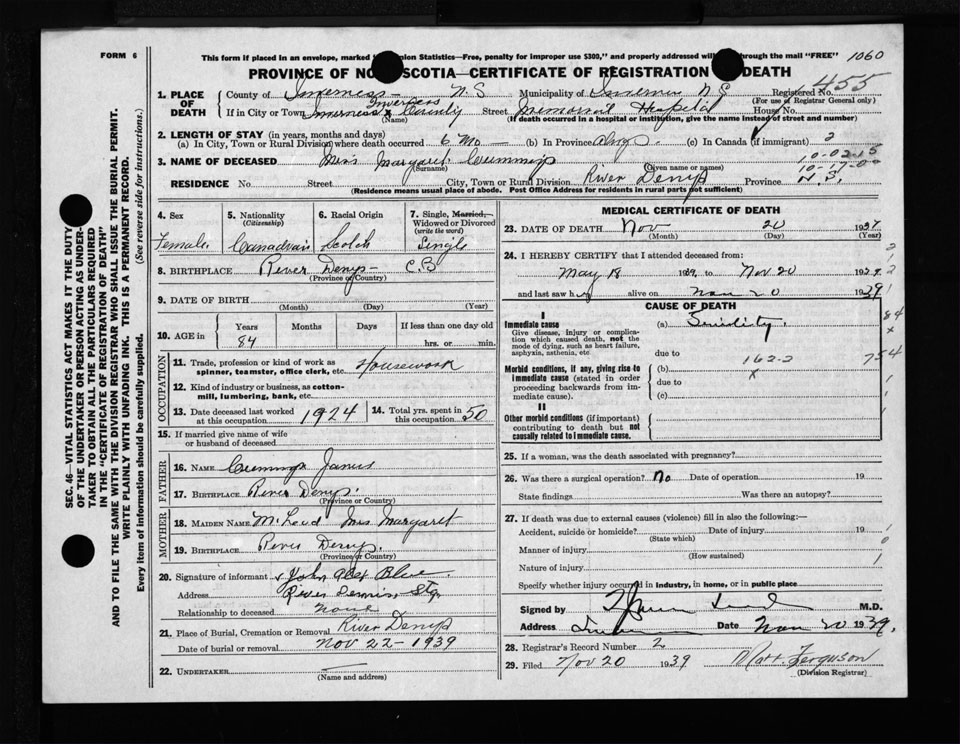 FORM 6
This form if placed in an envelope, marked "Dominion Statistics—Free, penalty for improper use $300," and properly addressed will pass through the mail "FREE" 1060
PROVINCE OF NOVA SCOTIA—CERTIFICATE OF REGISTRATION OF DEATH 455
1. PLACE OF DEATH County of Inverness N.S Municipality of Inverness N S Registered No.
(For use of Registrar General only)
If in City or Town Inverness Inverness County Street Memorial Hospital House No.
(Name) (If death occurred in a hospital or institution, give the name instead of street and number)
2. LENGTH OF STAY (in years, months and days)
(a) In City, Town or Rural Division where death occurred 6 Mo (b) In Province Always (c) In Canada (if immigrant) 2
3. NAME OF DECEASED Miss Margaret Cummings 10-02-15
(Surname) (Given name or names)
RESIDENCE No. Street City, Town or Rural Division River Denys Province N.S.
(Residence means usual place of abode. Post Office Address for residents in rural parts not sufficient)
4. Sex Female
5. Nationality (Citizenship) Canadian
6. Racial Origin Scotch
7. Single, Married, Widowed or Divorced (write the word) Single
8. BIRTHPLACE River Denys C.B
(Province or Country)
9. DATE OF BIRTH
(Month) (Day) (Year)
10. AGE in Years Months Days If less than one day old
84 hrs. or min.
OCCUPATION
11. Trade, profession or kind of work as spinner, teamster, office clerk, etc. Housework
12. Kind of industry or business, as cotton-mill, lumbering, bank, etc.
13. Date deceased last worked at this occupation 1924
14. Total yrs. spent in this occupation 50
15. If married give name of wife or husband of deceased
FATHER
16. NAME Cummings James
17. BIRTHPLACE River Denys
(Province or Country)
MOTHER
18. MAIDEN NAME McLeod Mrs Margaret
19. BIRTHPLACE River Denys
(Province or Country)
20. Signature of informant John Alex Blue
Address River Dennis, Stn
Relationship to deceased none
21. Place of Burial, Cremation or Removal River Denys
Date of burial or removal NOV 22-1939
22. UNDERTAKER
(Name and address)
MEDICAL CERTIFICATE OF DEATH
23. DATE OF DEATH Nov 20 1939
(Month) (Day) (Year)
24. I HEREBY CERTIFY that I attended deceased from:
May 18 1939 to Nov 20 1939
and last saw her alive on Nov 20 1939
CAUSE OF DEATH
I
Immediate cause (a) Senility 84
Give disease, injury or complication which caused death, not the mode of dying, such as heart failure, asphyxia, asthenia, etc
due to 754
Morbid conditions, if any, giving rise to immediate cause (stated in order proceeding backwards from immediate cause). (b) 162-2
due to x
(c)
II
Other morbid conditions (if important) contributing to death but not causally related to immediate cause.
25. If a woman, was the death associated with pregnancy?
26. Was there a surgical operation? No Date of operation 19
State findings Was there an autopsy?
27. If death was due to external causes (violence) fill in also the following:—
Accident, suicide or homicide? Date of injury 19
(State which)
Manner of injury
(How sustained)
Nature of injury
Specify whether injury occurred in industry, in home, or in public place
Signed by M.D.
Address Date Nov 20 1939.
28. Registrar's Record Number 2
29. Filed Nov 20 1939 Matt. Ferguson
(Division Registrar)
SEC. 46—VITAL STATISTICS ACT MAKES IT THE DUTY
OF THE UNDERTAKER OR PERSON ACTING AS UNDER-
TAKER TO OBTAIN ALL THE PARTICULARS REQUIRED
IN THE "CERTIFICATE OF REGISTRATION OF DEATH"
AND TO FILE THE SAME WITH THE DIVISION REGISTRAR WHO SHALL ISSUE THE BURIAL PERMIT.
WRITE PLAINLY WITH UNFADING INK. THIS IS A PERMANENT RECORD.
Every item of information should be carefully supplied. (See reverse side for instructions.)